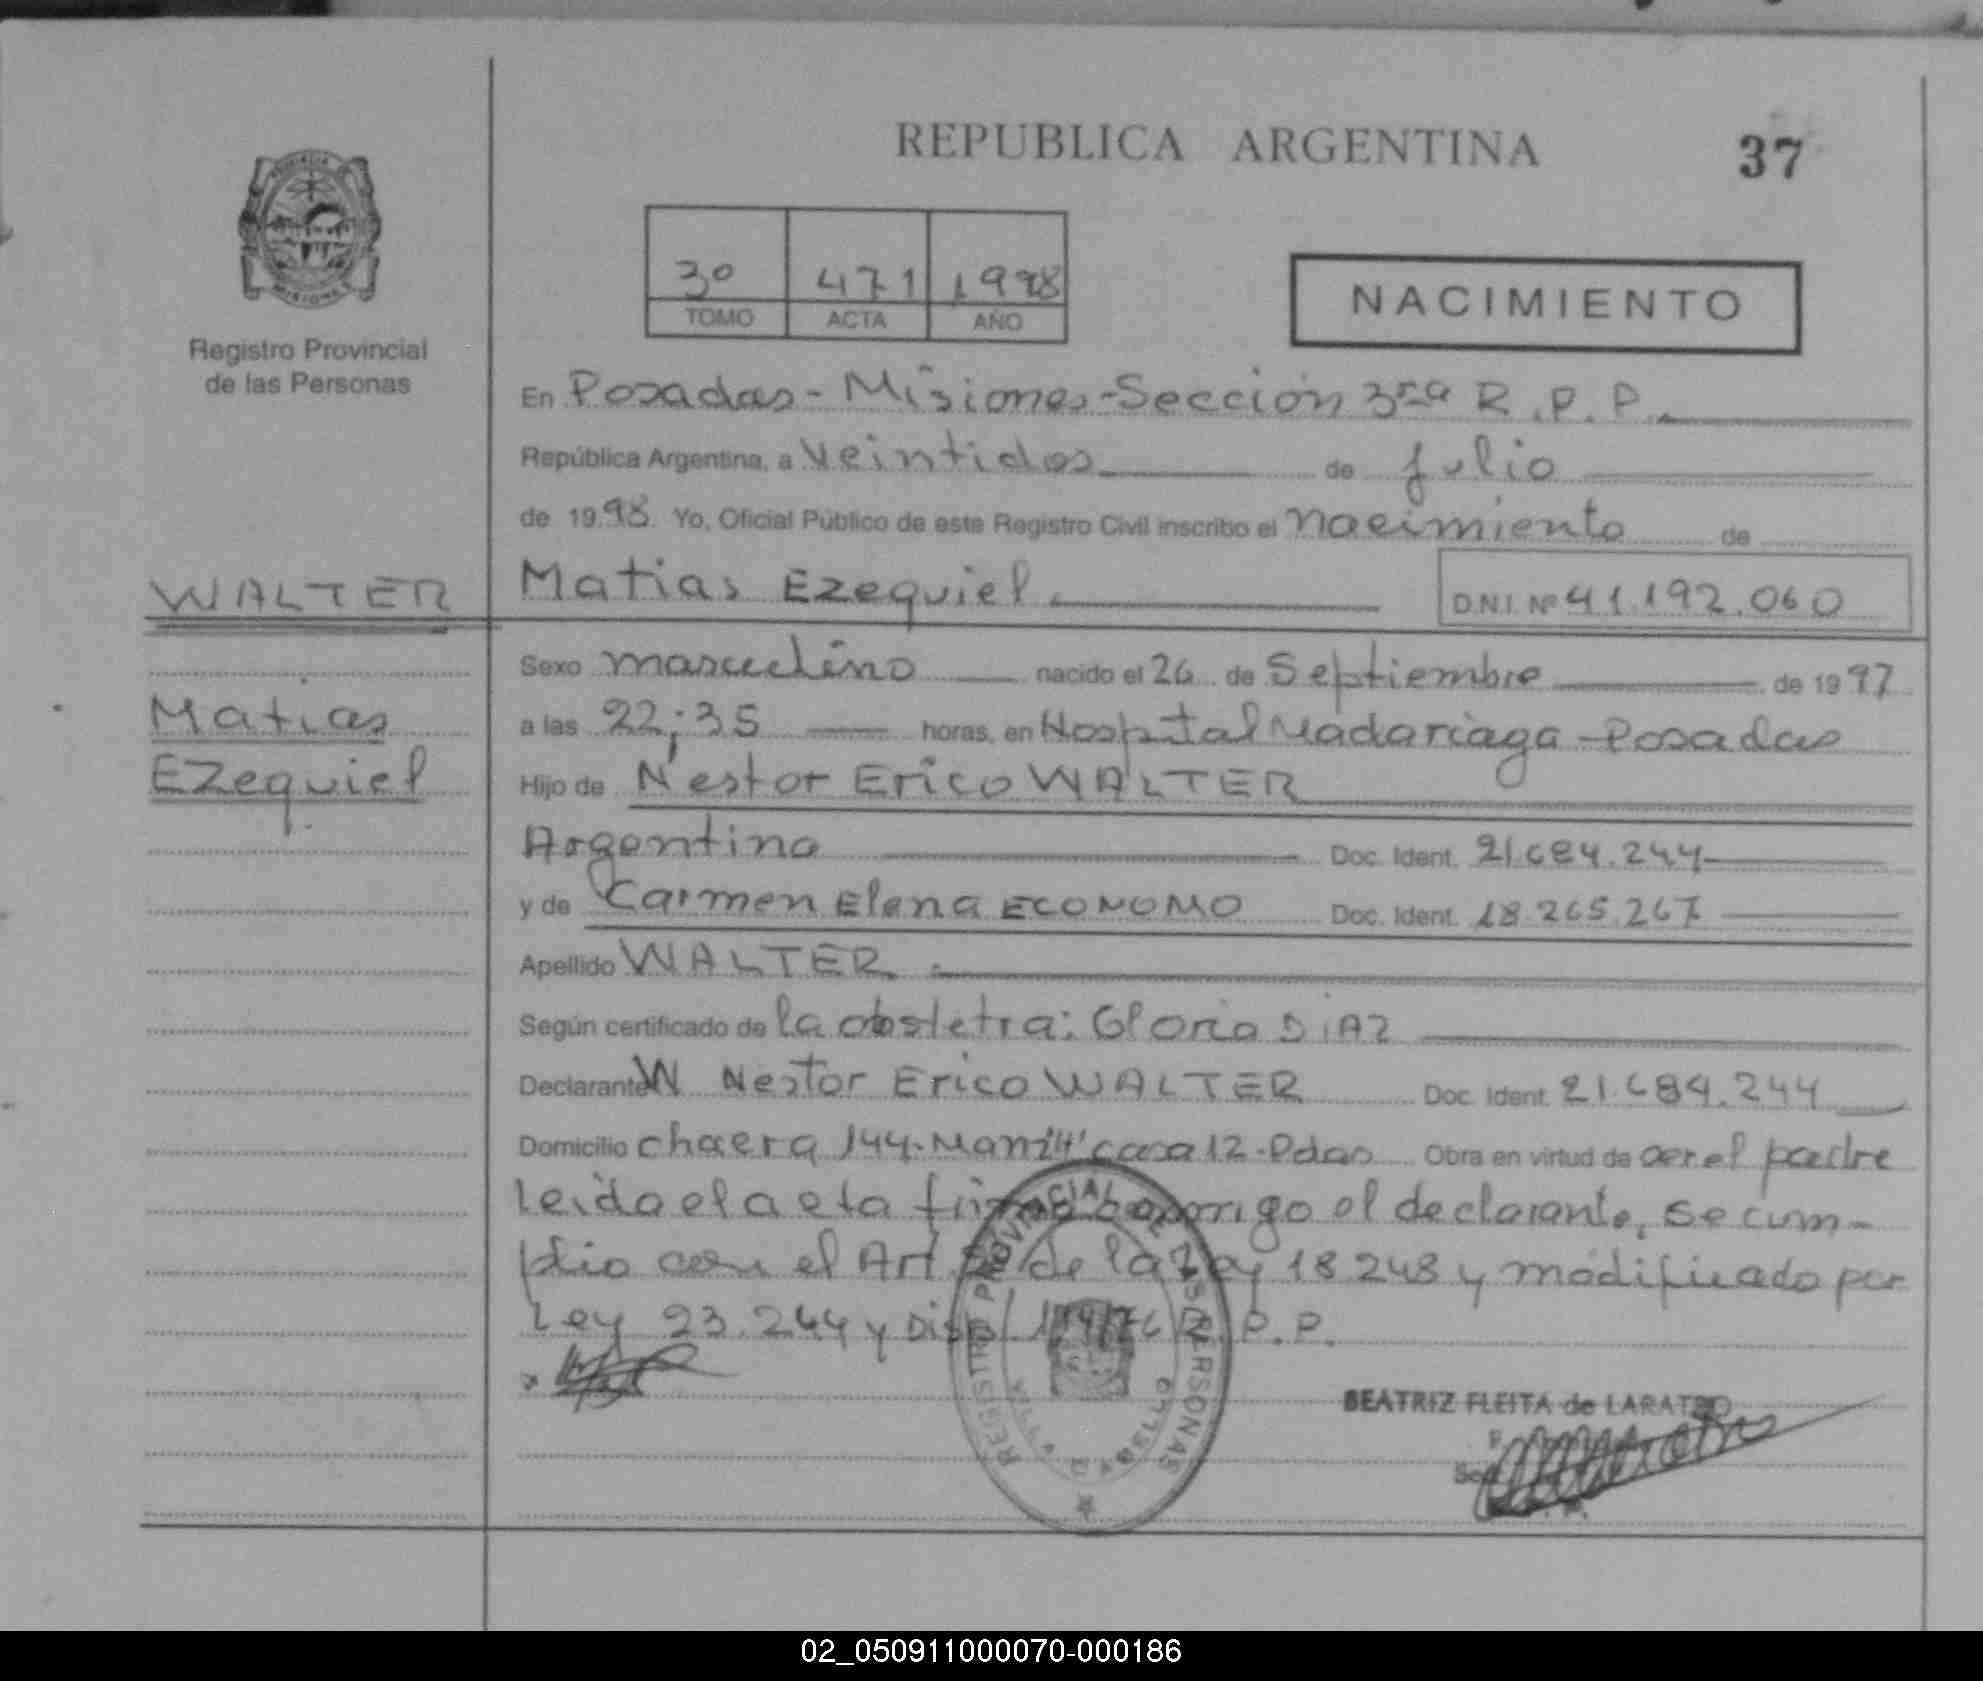 REPUBLICA ARGENTINA
37
PROVINCIA
MISIONES
Registro Provincial
de las Personas
3º 471 1998
TOMO ACTA AÑO
NACIMIENTO
En Posadas - Misiones - Sección 3ra R.P.P.
República Argentina, a Veintidos de julio
de 1998. Yo, Oficial Público de este Registro Civil inscribo el nacimiento de
WALTER
Matias Ezequiel. D.N.I. Nº 41.192.060
Sexo masculino nacido el 26 de Septiembre de 1997
Matias
Ezequiel
a las 22:35 horas, en Hospital Madariaga - Posadas
Hijo de Nestor Erico WALTER
Argentino Doc. Ident. 21.684.244
y de Carmen Elena ECONOMO Doc. Ident. 18.265.267
Apellido WALTER.
Según certificado de la obstetra: Gloria DIAZ
Declarante Nestor Erico WALTER Doc. Ident. 21.684.244
Domicilio chacra 144. casa 12. Pdas Obra en virtud de ser el padre
Leida el acta firma conmigo el declarante, se cum-
plio con el Art. de la Ley 18248 y modificado por
Ley 23.244 y R.P.P.
REGISTRO PROVINCIAL DE LAS PERSONAS
VILLA CABELLO
BEATRIZ FLEITA de LARATRO
02_050911000070-000186